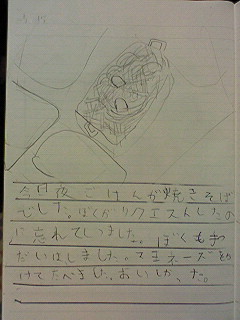 今日夜ごはんが焼きそば
でした。ぼくがリクエストしたの
に忘れてしまいました。ぼくもきづ
だいはしました。マヨネーズをか
けてたべました。おいしかった。